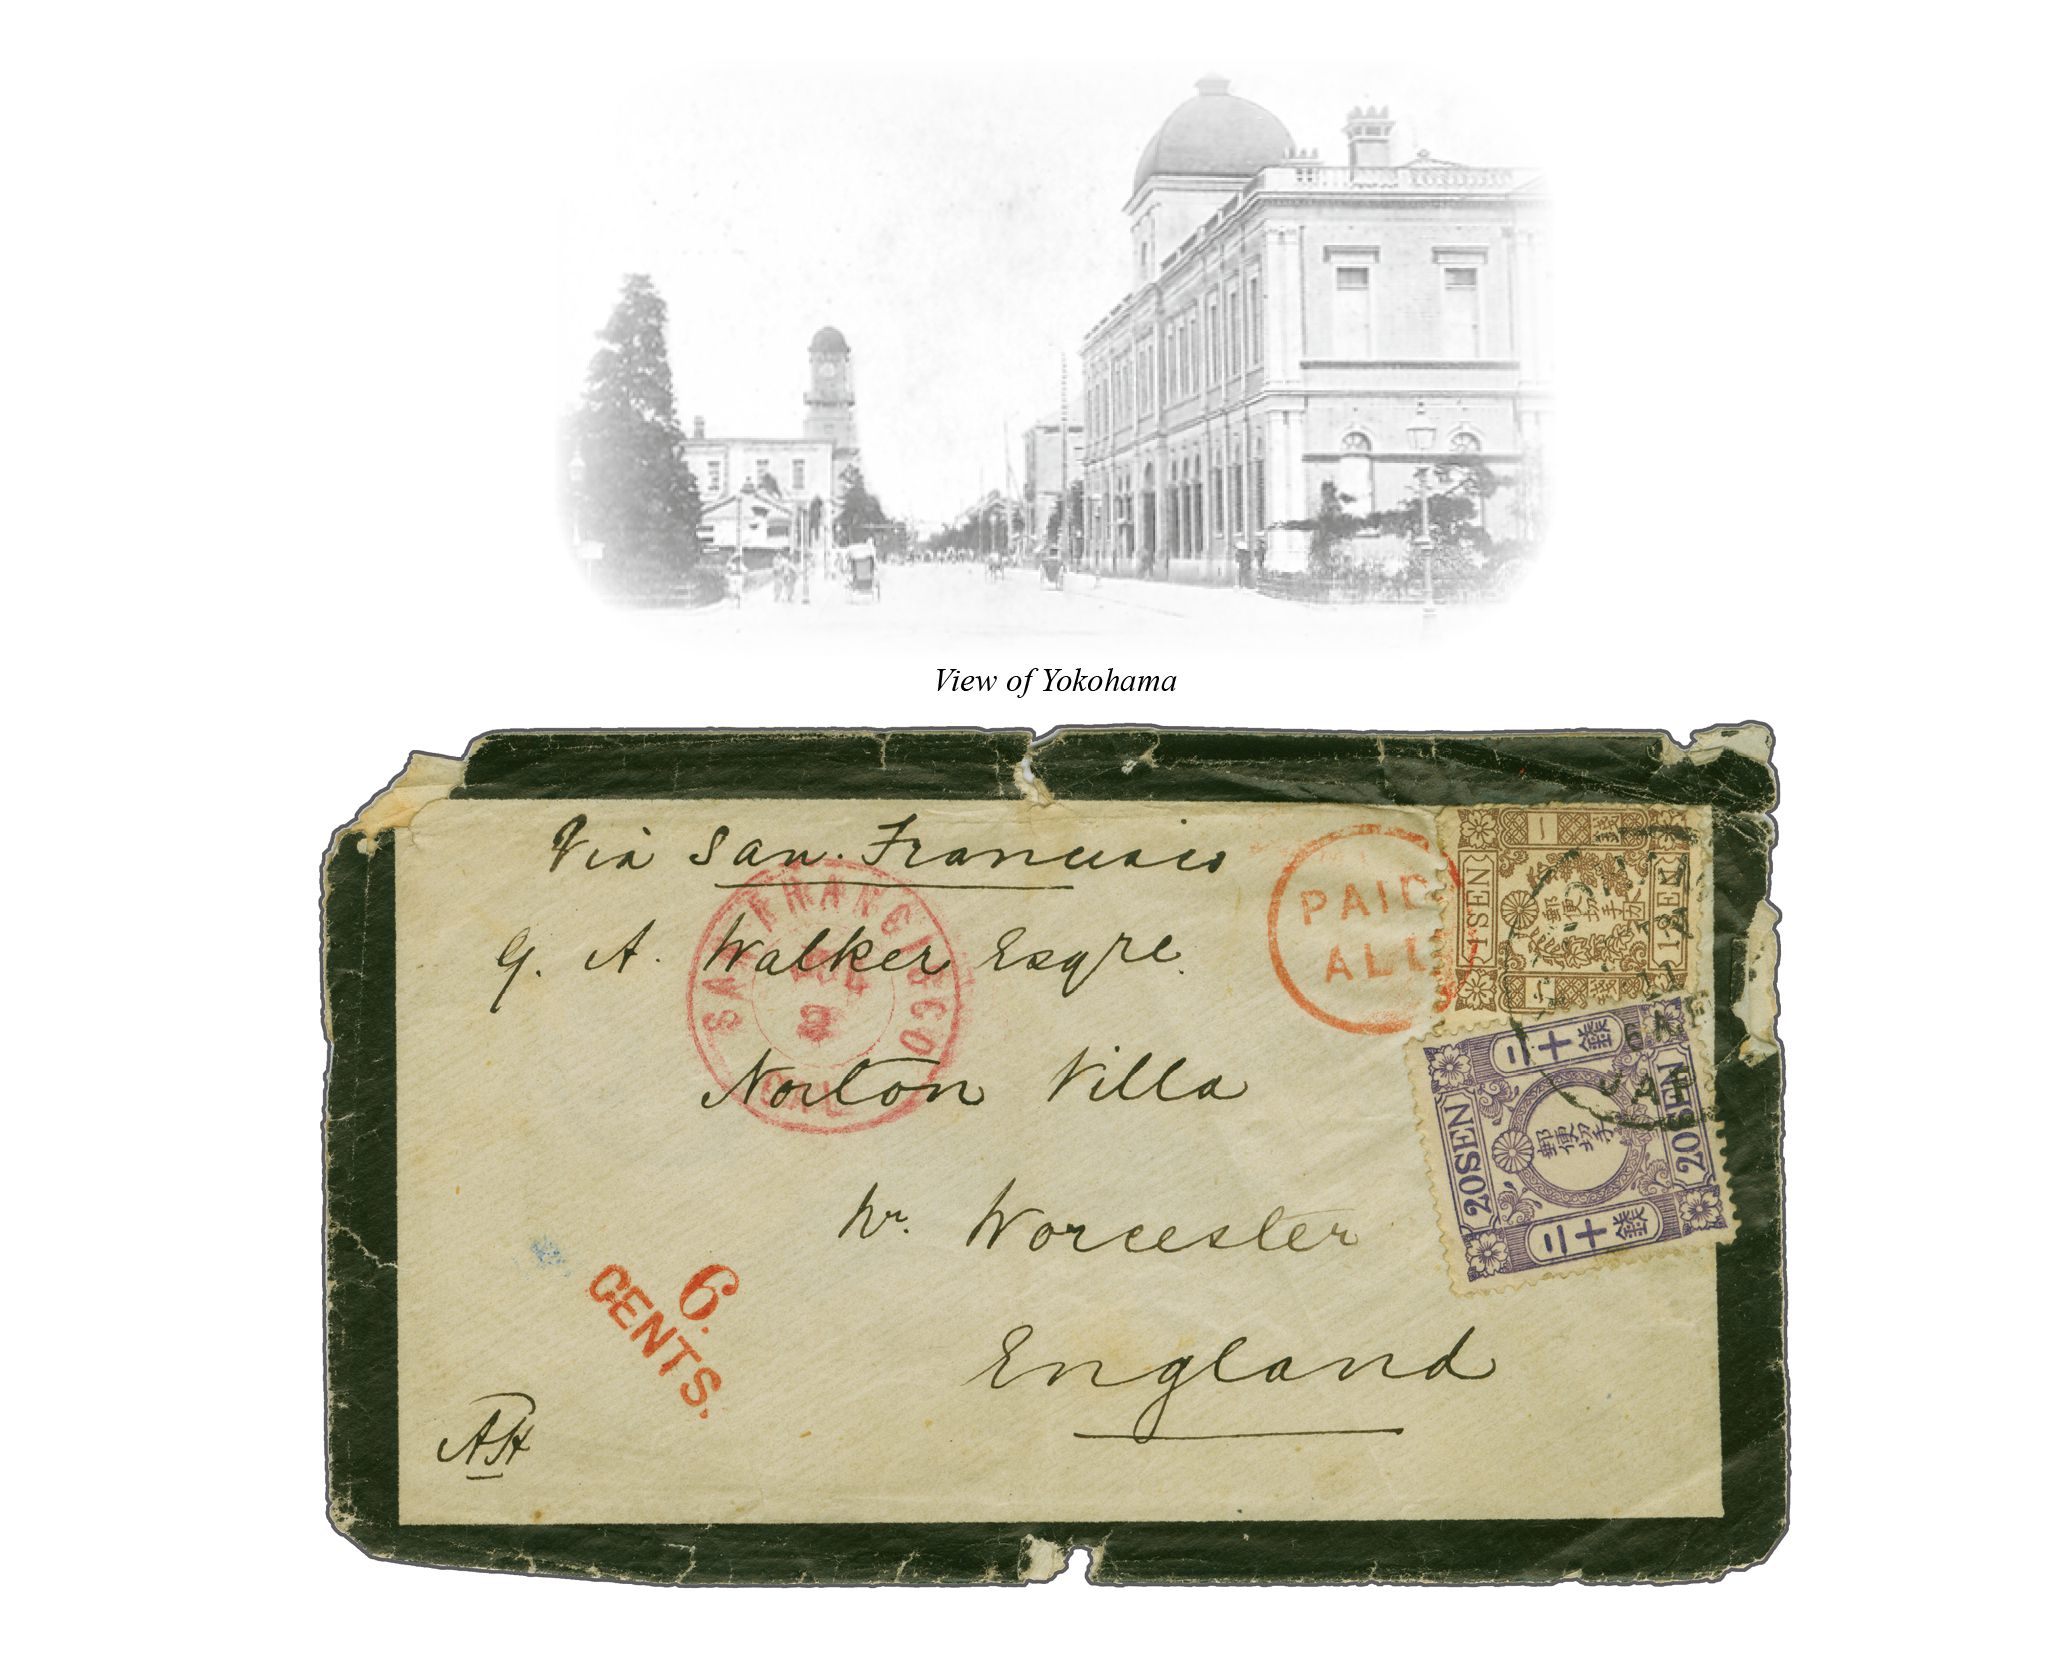 View of Yokohama
Via San. Francisco
G. A. Walker Esqre.
Norton Villa
Nr. Worcester
England
AH
SAN FRANCISCO
2
CAL
PAID
ALL
6.
CENTS.
一 錢
1 SEN
1 SEN
郵便切手
一 錢
11
JAP
二十錢
20 SEN
20 SEN
郵便切手
二十錢